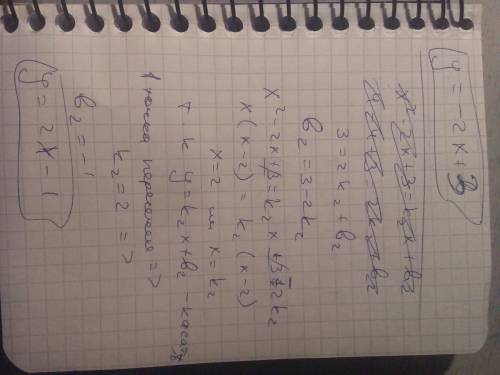 y = -2x + 3
x² - 2x + 3 = k₂x + b₂
3 = 2k₂ + b₂
b₂ = 3 - 2k₂
x² - 2x + 3 = k₂x + 3 - 2k₂
x(x-2) = k₂(x-2)
x=2 или x=k₂
т.к y=k₂x+b₂ - касат
1 точка пересечен =>
k₂ = 2 =>
b₂ = -1
y = 2x - 1